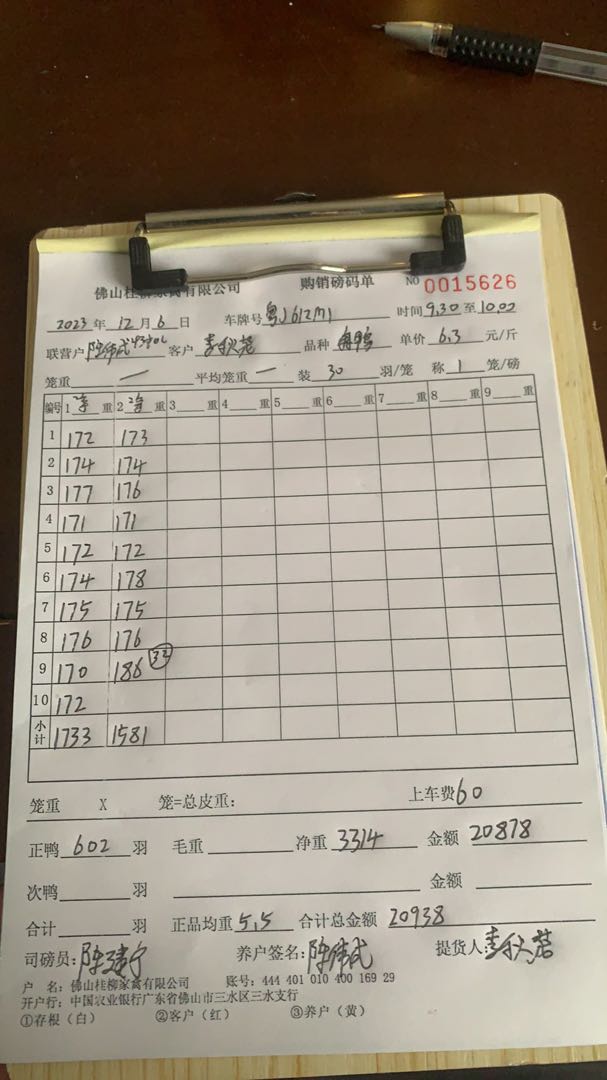 佛山桂柳家禽有限公司 购销磅码单 NO 0015626
2023年12月6日 车牌号 粤J612M1 时间9.30至10.02
联营户 陈伟成 客户 李秋 品种 鸭 单价 6.3 元/斤
笼重 一 平均笼重 一 装 30 羽/笼 称 1 笼/磅
编号 1 净 重 2 净 重 3 重 4 重 5 重 6 重 7 重 8 重 9 重
1 172 173
2 174 174
3 177 176
4 171 171
5 172 172
6 174 178
7 175 175
8 176 176
9 170 186 32
10 172
小计 1733 1581
笼重 X 笼=总皮重: 上车费60
正鸭 602 羽 毛重 净重 3314 金额 20878
次鸭 羽 金额
合计 羽 正品均重 5.5 合计总金额 20938
司磅员: 陈 养户签名: 陈伟成 提货人: 李秋
户 名: 佛山桂柳家禽有限公司 账号: 444 401 010 400 169 29
开户行: 中国农业银行广东省佛山市三水区三水支行
①存根(白) ②客户(红) ③养户(黄)